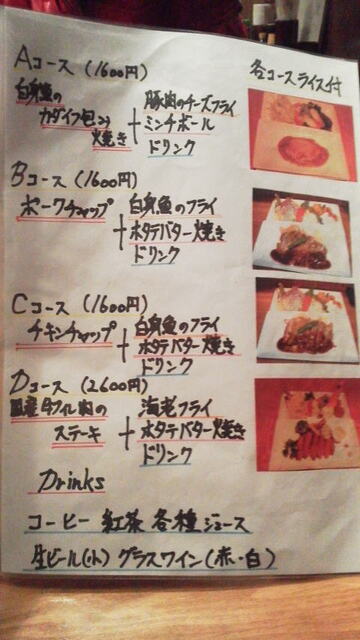 Aコース (1600円)
各コースライス付
白身魚の
カダイフ包み
焼き
+
豚肉のチーズフライ
ミンチボール
ドリンク
Bコース (1600円)
ポークチャップ
+
白身魚のフライ
ホタテバター焼き
ドリンク
Cコース (1600円)
チキンチャップ
+
白身魚のフライ
ホタテバター焼き
ドリンク
Dコース (2600円)
国産牛フィレ肉の
ステーキ
+
海老フライ
ホタテバター焼き
ドリンク
Drinks
コーヒー 紅茶 各種ジュース
生ビール(小) グラスワイン(赤・白)